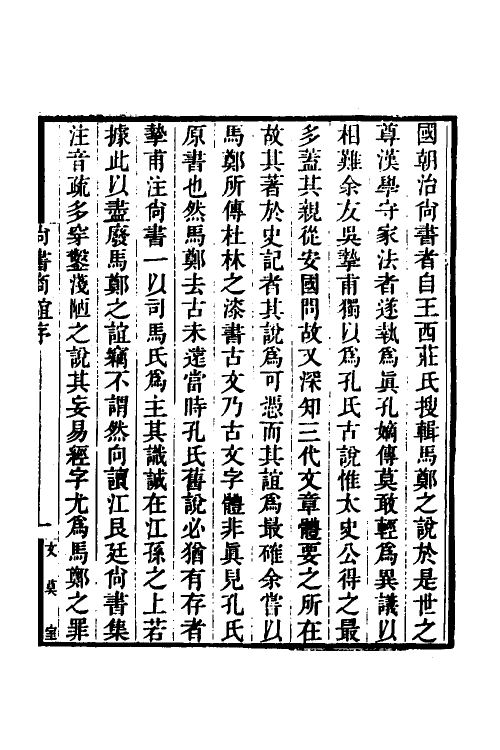 國朝治尙書者自王西莊氏搜輯馬鄭之說於是世之
尊漢學守家法者遂執爲眞孔嫡傳莫敢輕爲異議以
相難余友吳摯甫獨以爲孔氏古說惟太史公得之最
多蓋其親從安國問故又深知三代文章體要之所在
故其著於史記者其說爲可憑而其誼爲最確余嘗以
馬鄭所傳杜林之漆書古文乃古文字體非眞見孔氏
原書也然馬鄭去古未遠當時孔氏舊說必猶有存者
摯甫注尙書一以司馬氏爲主其識誠在江孫之上若
據此以盡廢馬鄭之誼竊不謂然向讀江艮廷尙書集
注音疏多穿鑿淺陋之說其妄易經字尤爲馬鄭之罪
尙書商誼序
一
文莫室